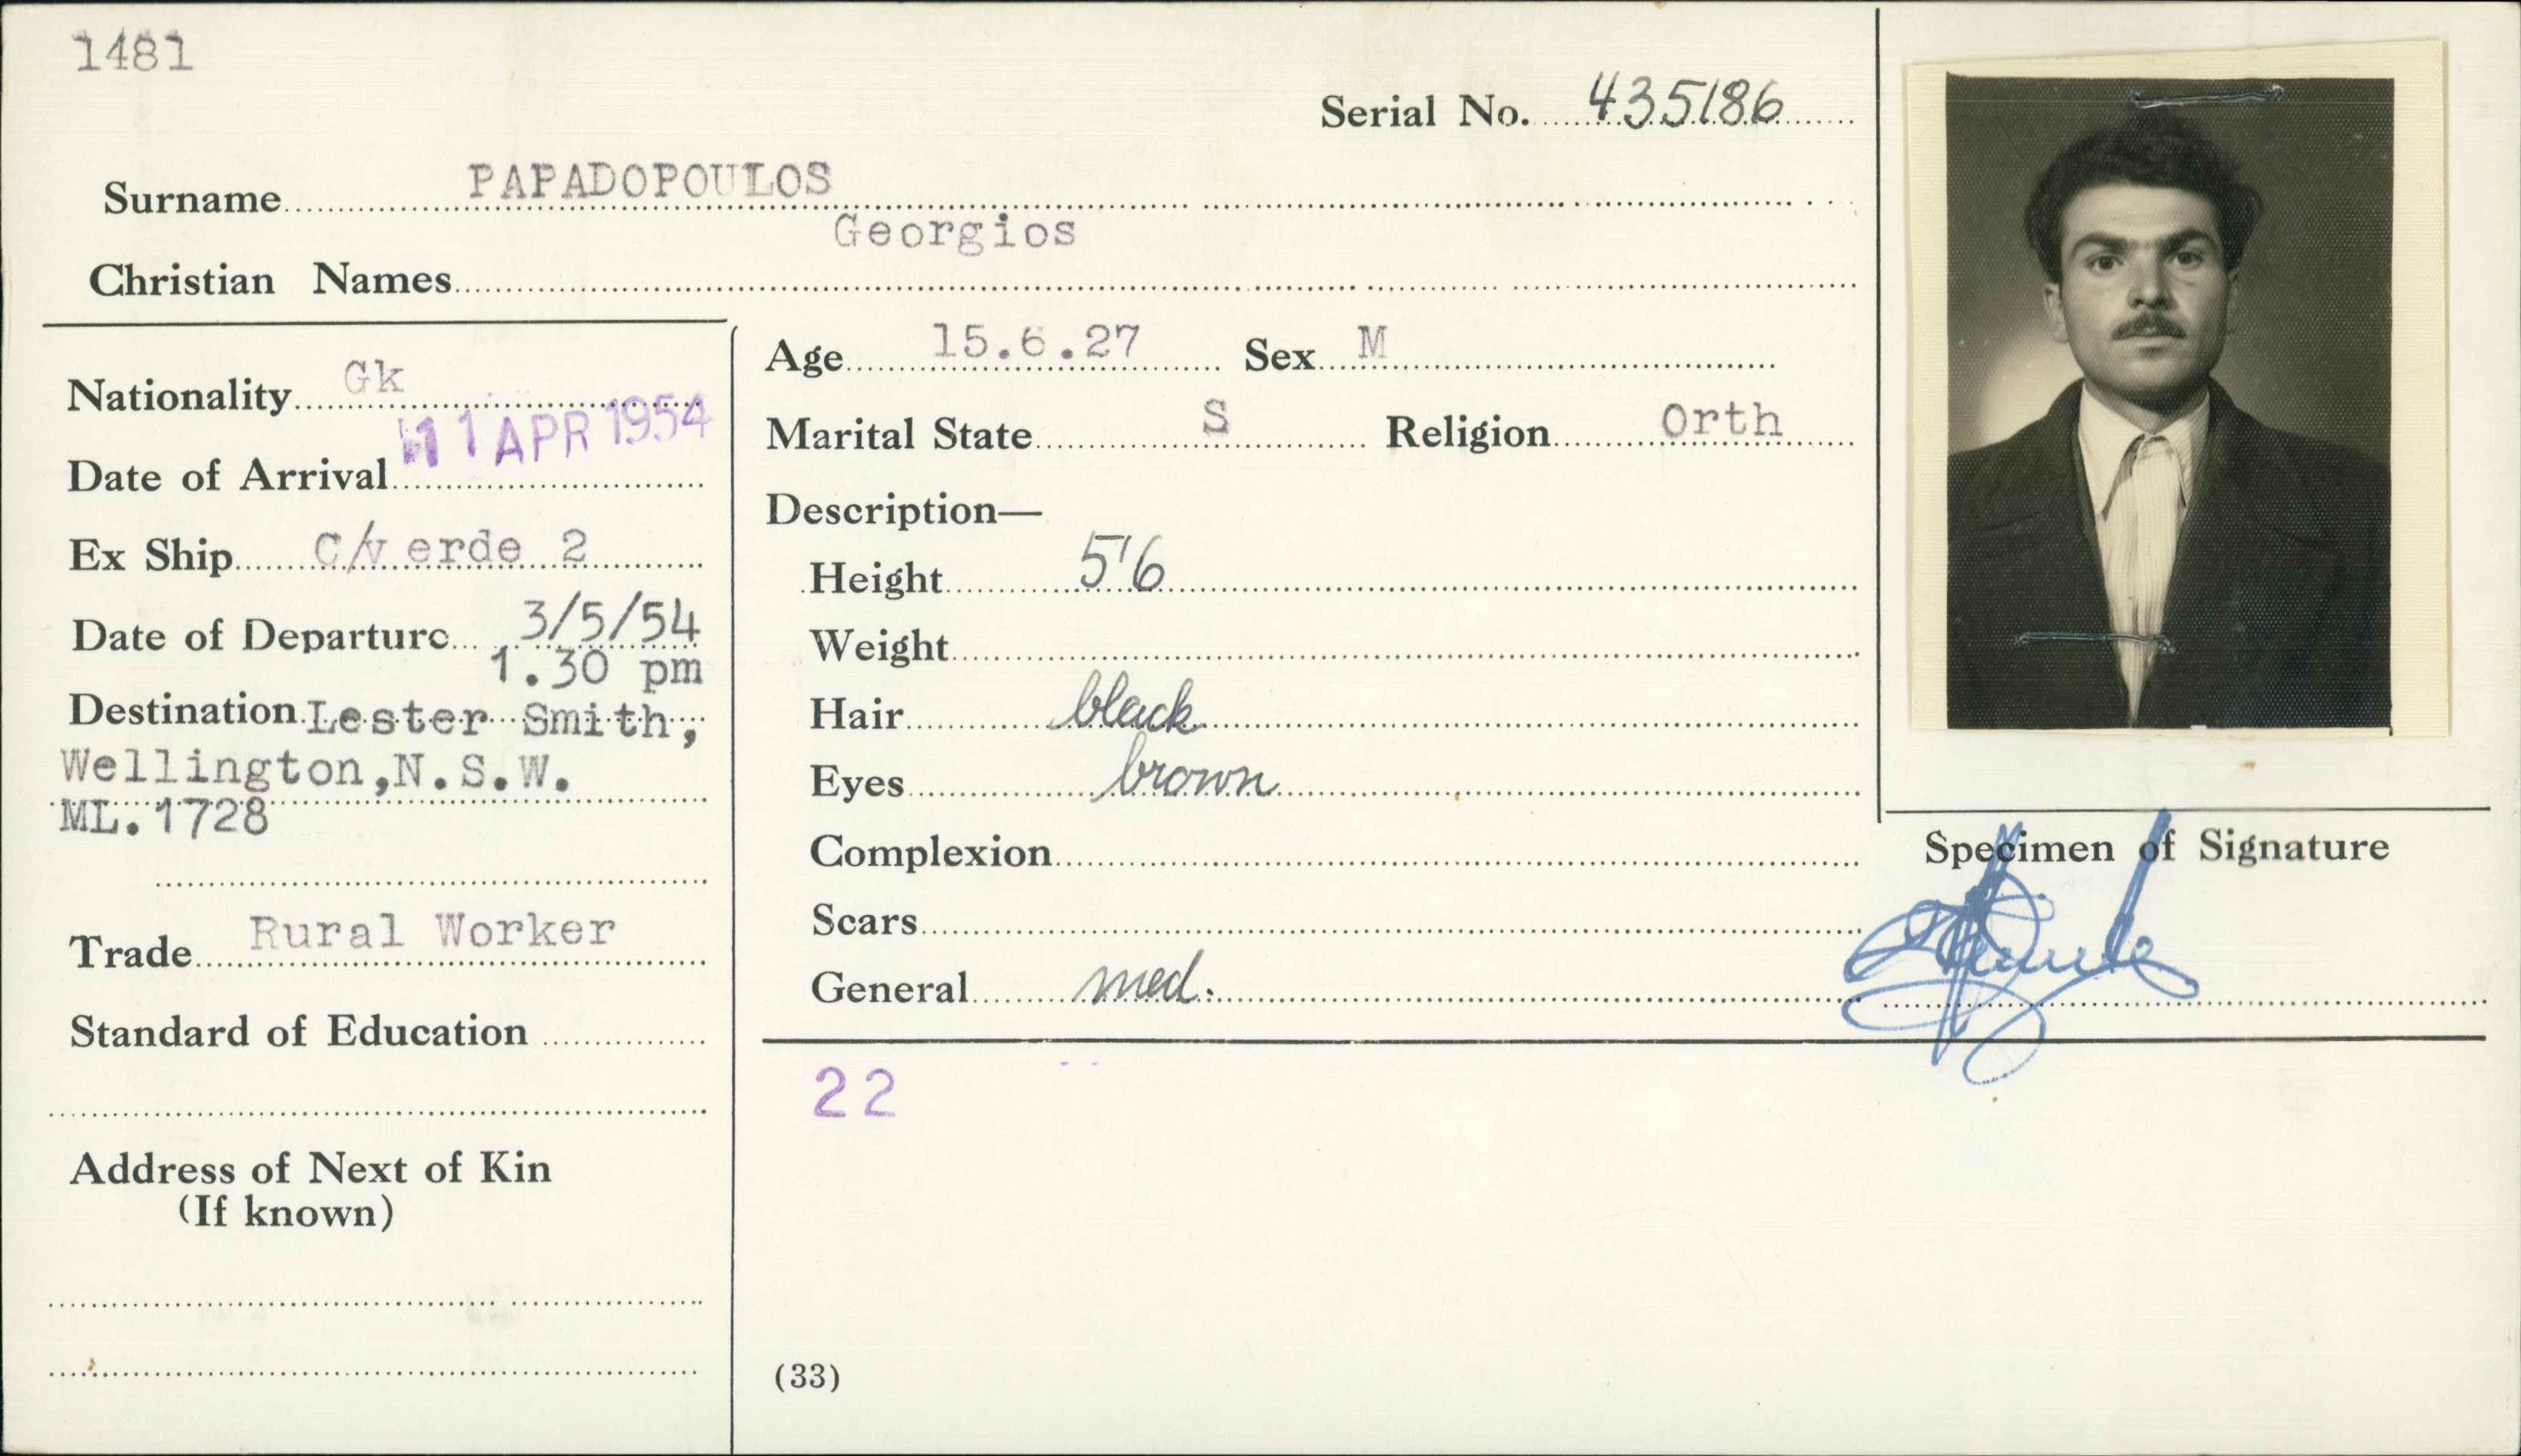 1481
Serial No. 435186
Surname PAPADOPOULOS
Georgios
Christian Names
Nationality Gk
Date of Arrival 11 APR 1954
Ex Ship C/v erde 2
Date of Departure 3/5/54
1.30 pm
Destination Lester Smith,
Wellington, N.S.W.
ML.1728
Trade Rural Worker
Standard of Education
Address of Next of Kin
(If known)
Age 15.6.27 Sex M
Marital State S Religion Orth
Description—
Height 5'6
Weight
Hair black
Eyes brown
Complexion
Scars
General med.
22
(33)
Specimen of Signature